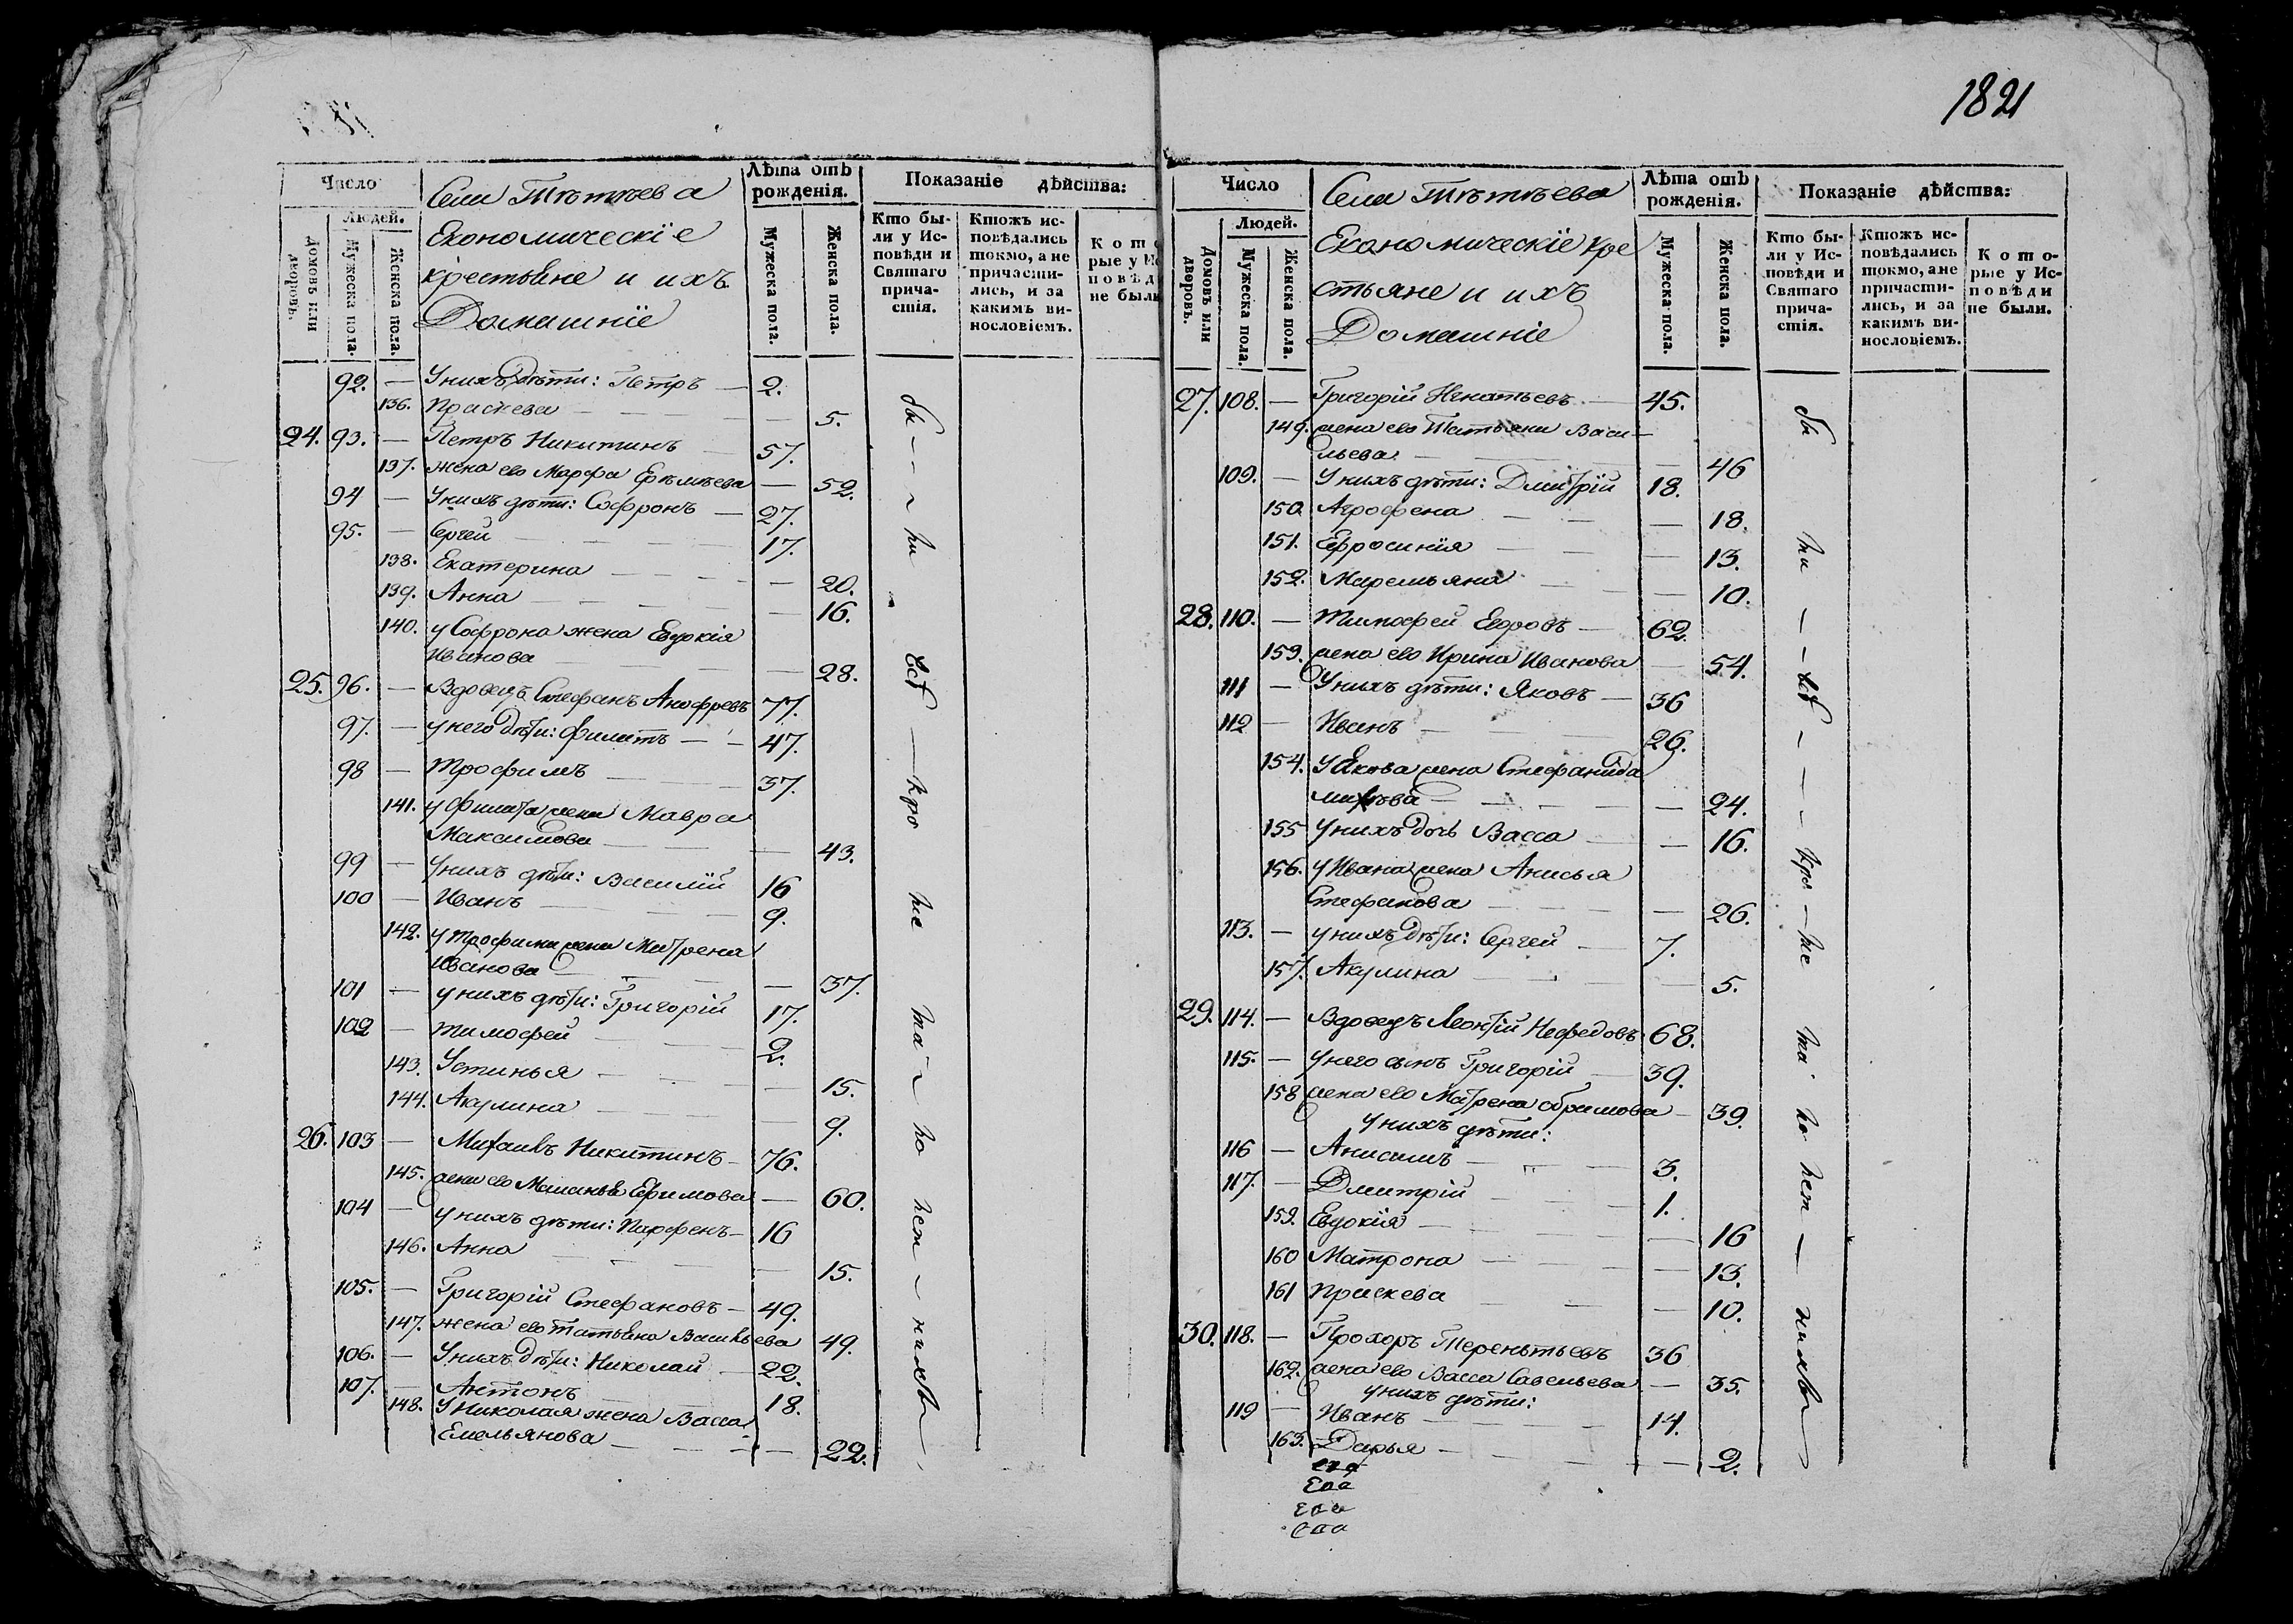 Число
Людей.
Домовъ или дворовъ.
Мужеска пола.
Женска пола.
Села Тѣтѣева
Економическіе
крестьяне и ихъ
Домашніе
Лѣта отъ рожденія.
Мужеска пола.
Женска пола.
Показаніе дѣйства:
Кто бы-
ли у Ис-
повѣди и
Святаго
прича-
стія.
Ктожъ ис-
повѣдались
токмо, а не
причасти-
лись, и за
какимъ ви-
нословіемъ.
Кото
рые у Ис
повѣд
не были
92. — У нихъ дѣти: Петръ — 2.
136. Праскева — 5.
24. 93. — Петръ Никитинъ 57.
137. жена ево Марфа Ерѣмѣева — 52.
94 — У нихъ дѣти: Софронъ — 27.
95. — Сергей 17.
138. Екатерина — 20.
139. Анна — 16.
140. у Софрона жена Евдокія
Иванова — 28.
25. 96. — Вдовецъ Стефанъ Анофревъ 77.
97. — у него дѣти: Филатъ — 47.
98 — Трофимъ 37.
141. у Филата жена Мавра
Максимова — 43.
99 — У нихъ дѣти: Василій 16
100 — Иванъ 9.
142. у Трофима жена Матрена
Иванова — 37.
101 — у нихъ дѣти: Григорій 17.
102 — Тимофей 2.
143. Устинья — 15.
144. Акулина — 9.
26. 103 — Михаилъ Никитинъ — 76.
145. жена ево Маланья Ефимова — 60.
104 — у нихъ дѣти: Парфенъ — 16
146. Анна — 15.
105. — Григорій Стефановъ — 49.
147. жена ево Татьяна Васильева 49.
106. — У нихъ дѣти: Николай — 22.
107. — Антонъ 18.
148. У Николая жена Васса
Емельянова — 22.
бы — ли всѣ — кро ме ма — ло лет — нихъ
1821
Число
Людей.
Домовъ или дворовъ.
Мужеска пола.
Женска пола.
Села Тѣтѣева
Економическіе кре
стьяне и ихъ
Домашніе
Лѣта отъ рожденія.
Мужеска пола.
Женска пола.
Показаніе дѣйства:
Кто бы-
ли у Ис-
повѣди и
Святаго
прича-
стія.
Ктожъ ис-
повѣдались
токмо, а не
причасти-
лись, и за
какимъ ви-
нословіемъ.
Кото-
рые у Ис-
повѣди
не были.
27. 108. — Григорій Игнатьевъ — 45.
149. жена ево Татьяна Васи-
льева — 46
109. — У нихъ дѣти: Дмитрій 18.
150. Агрофена — 18.
151. Ефросинія — 13.
152. Маремьяна — 10.
28. 110. — Тимофей Егоровъ — 62.
153. жена ево Ирина Иванова — 54.
111 — У нихъ дѣти: Яковъ — 36
112 — Иванъ 26.
154. У Якова жена Стефанида
— 24.
155 У нихъ дочь Васса — 16.
156. у Ивана жена Анисья
Стефанова — 26.
113. — у нихъ дѣти: Сергей 7.
157. Акулина — 5.
29. 114. — Вдовецъ Леонтій Нефедовъ 68.
115. — у него сынъ Григорій 39.
158 жена ево Матрена Абрамова — 39.
у нихъ дѣти:
116 — Анисимъ 3.
117. — Дмитрій 1.
159. Евдокія — 16
160 Матрона — 13.
161 Праскева — 10.
30. 118. — Прохоръ Терентьевъ 36
162. жена ево Васса Савельева — 35.
у нихъ дѣти:
119 — Иванъ 14.
163. Дарья — 2.
бы ли — всѣ — кро — ме ма ло лет — нихъ